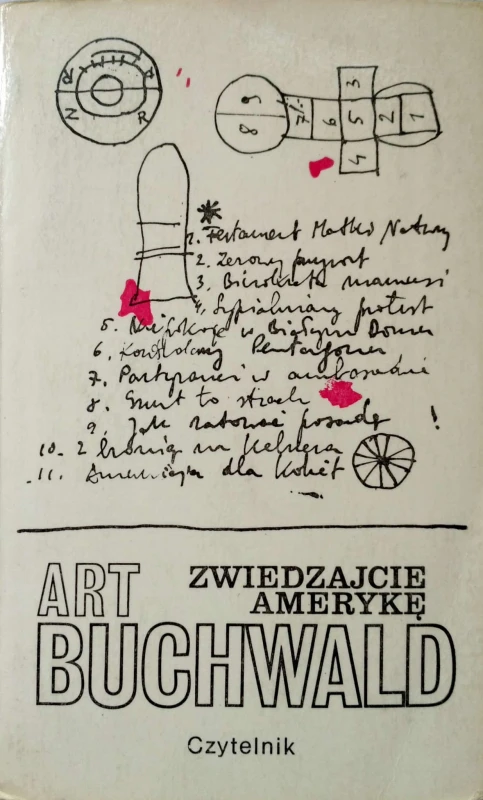 R
N R
9
8
7/.
6
3
5
4
2
1
1. Testament Matki Natury
2. Zerowy przyrost
3. Biurokrata mamusi
4. Sypialniany protest
5. Niepokoje w Białym Domu
6. Pentagonu
7. Partyzanci w ambasadzie
8. Grunt to strach
9. Jak ratować posadę !
10. Z bronią na kelnera
11. dla kobiet
ART
ZWIEDZAJCIE
AMERYKĘ
BUCHWALD
Czytelnik